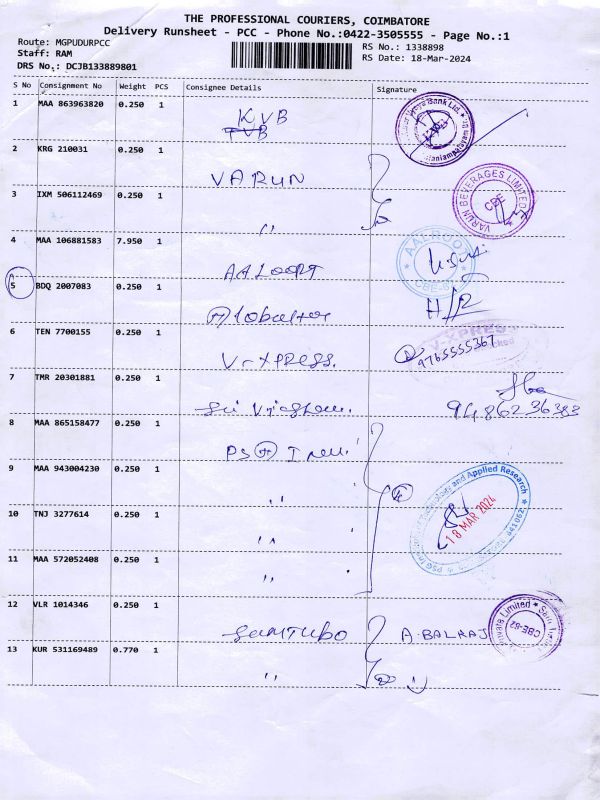 THE PROFESSIONAL COURIERS, COIMBATORE
Delivery Runsheet - PCC - Phone No.:0422-3505555 - Page No.:1
Route: MGPUDURPCC
Staff: RAM
DRS No.: DCJB133889801
RS No.: 1338898
RS Date: 18-Mar-2024
S No Consignment No Weight PCS Consignee Details Signature
1 MAA 863963820 0.250 1
KVB
2 KRG 210031 0.250 1
VARUN
3 IXM 506112469 0.250 1
,,
VARUN BEVERAGES LIMITED
CBE
4 MAA 106881583 7.950 1
5 BDQ 2007083 0.250 1
6 TEN 7700155 0.250 1
V-XPRESS.
V-XPRES
9765555367
7 TMR 20301881 0.250 1
Sri
94862 36383
8 MAA 865158477 0.250 1
PSG
9 MAA 943004230 0.250 1
,,
4
18 MAR 2024
10 TNJ 3277614 0.250 1
,,
11 MAA 572052408 0.250 1
,,
12 VLR 1014346 0.250 1
A. BALRAJ
CBE-62
13 KUR 531169489 0.770 1
,,